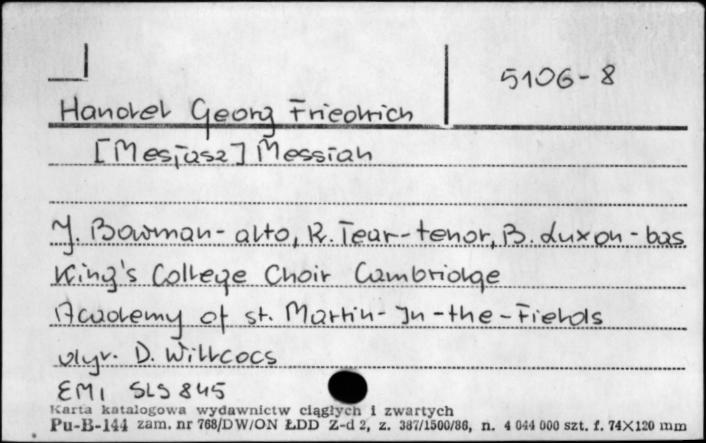 5106-8
Handel Georg Friedrich
[Mesjasz] Messiah
J. Bowman - alto, R. Tear - tenor, B. Luxon - bas
King's College Choir Cambridge
Academy of st. Martin-In-the-Fields
dyr. D. Willcocs
EMI SLS 845
Karta katalogowa wydawnictw ciągłych i zwartych
Pu-B-144 zam. nr 768/DW/ON ŁDD Z-d 2, z. 387/1500/86, n. 4 044 000 szt. f. 74X120 mm